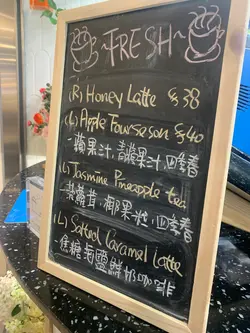 ~FRESH~
(R) Honey Latte $38
(L) Apple Fourseason $40
-蘋果汁, 青蘋果汁, 四季春
(L) Jasmine Pineapple tea
- 茉, 椰果粒, 四季春
(L) Salted Caramel Latte
- 焦糖海鹽鮮